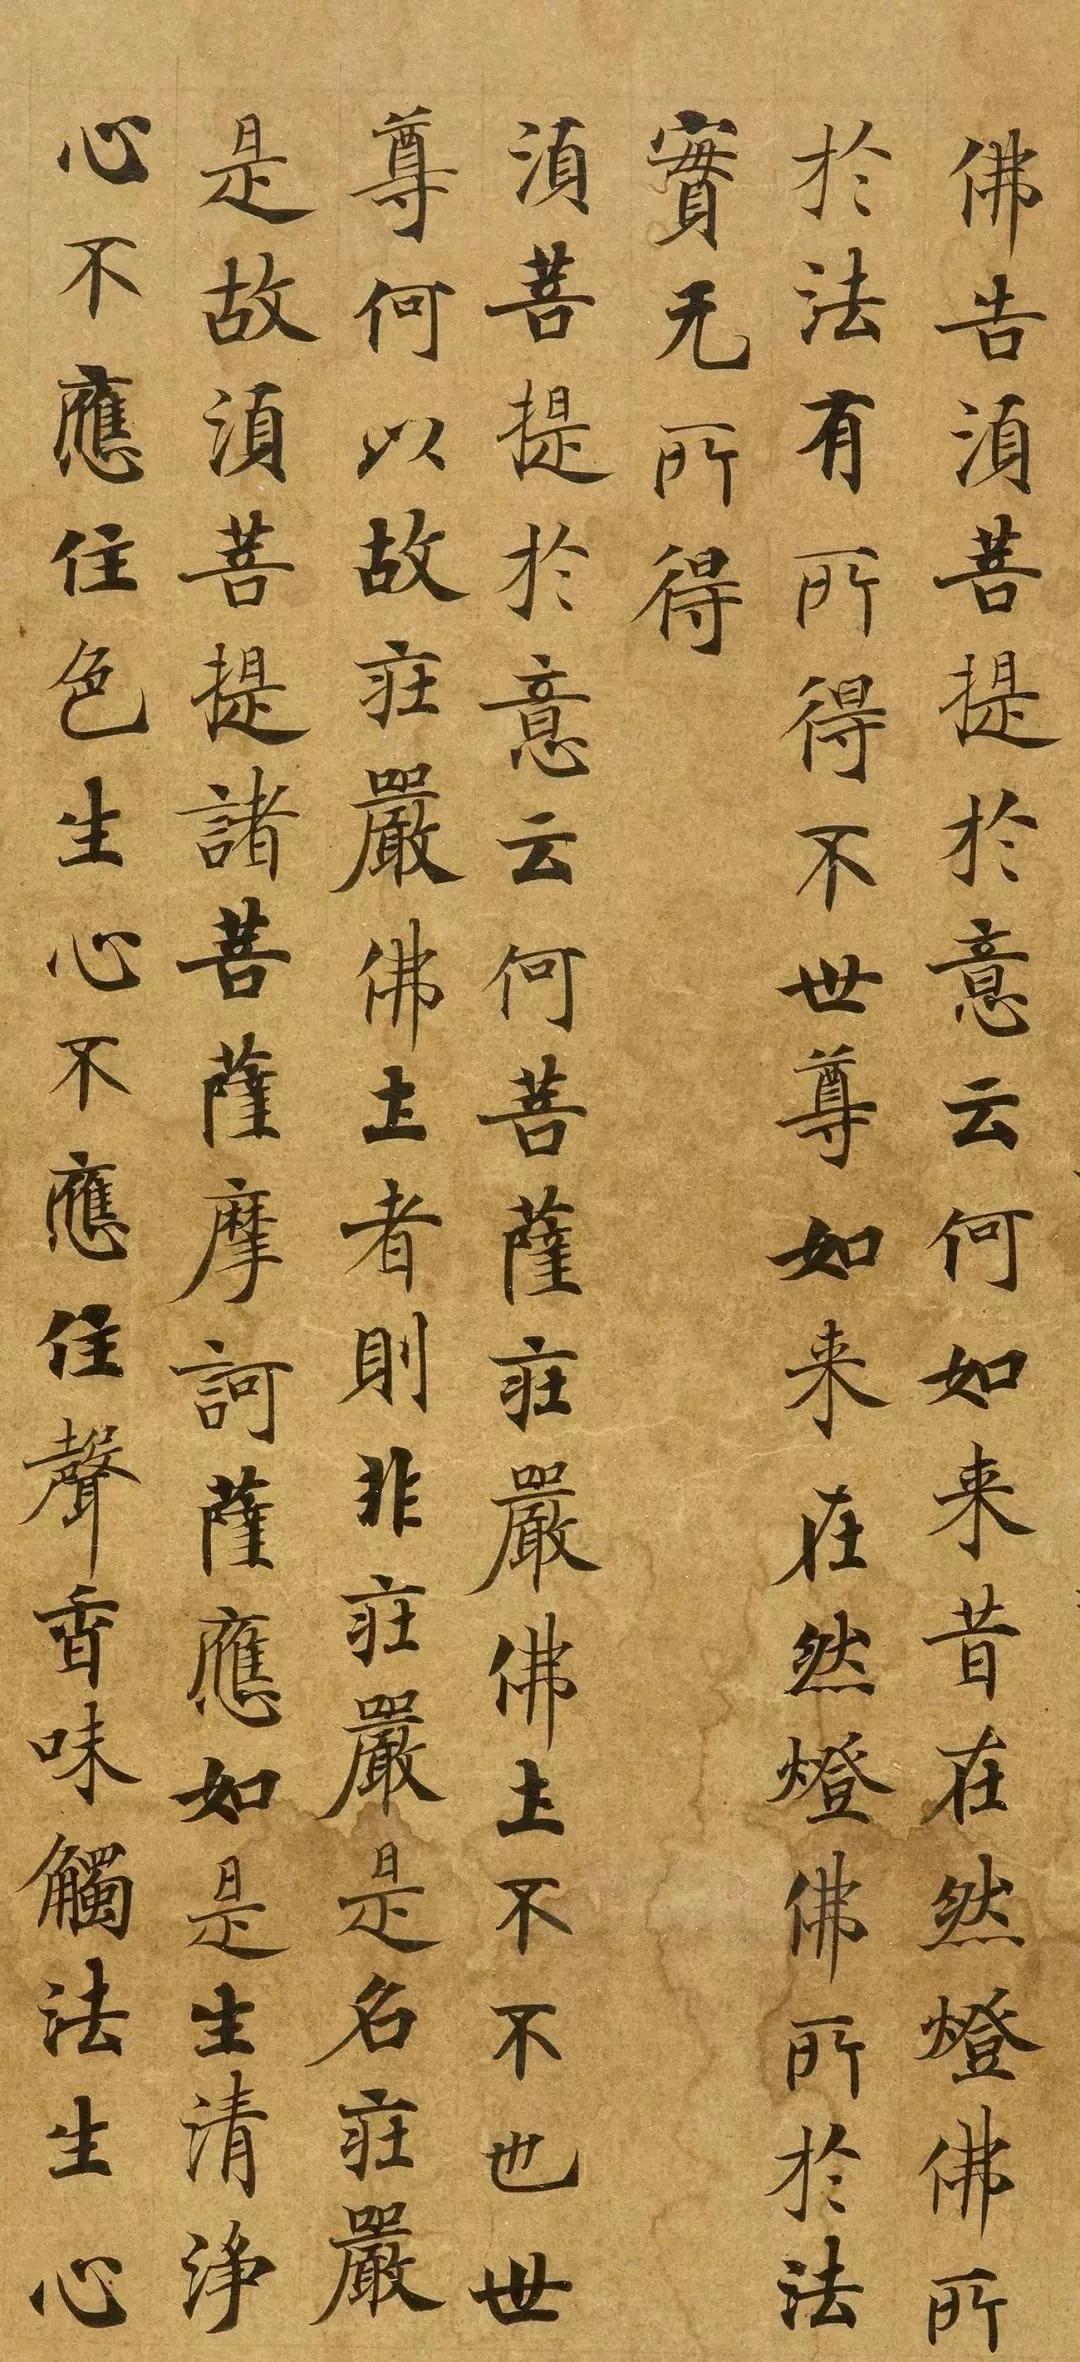 佛告須菩提於意云何如来昔在然燈佛所
於法有所得不世尊如来在然燈佛所於法
實无所得
須菩提於意云何菩薩莊嚴佛土不不也世
尊何以故莊嚴佛土者則非莊嚴是名莊嚴
是故須菩提諸菩薩摩訶薩應如是生清淨
心不應住色生心不應住聲香味觸法生心